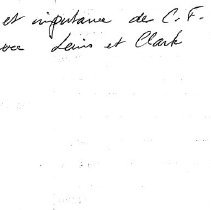 et importance des C.F.
Lewis et Clark